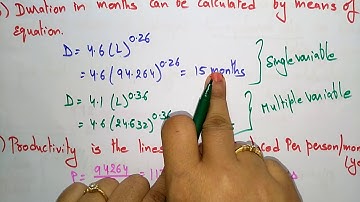 ) Duration in months can be calculated by means of
equation.
D = 4.6 (L)^0.26
= 4.6 (94.264)^0.26 = 15 months
} Single variable
D = 4.1 (L)^0.36
= 4.6 (24.632)^0.36
} Multiple variable
) Productivity is the lines Per person/mon
P = 94264